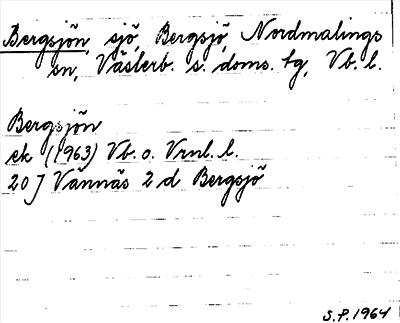 Bergsjön, sjö, Bergsjö, Nordmalings
sn, Västerb. s. doms. tg, Vb. l.
Bergsjön
ek (1963) Vb. o. Vrnl. l.
20 J Vännäs 2 d Bergsjö
S.P. 1964